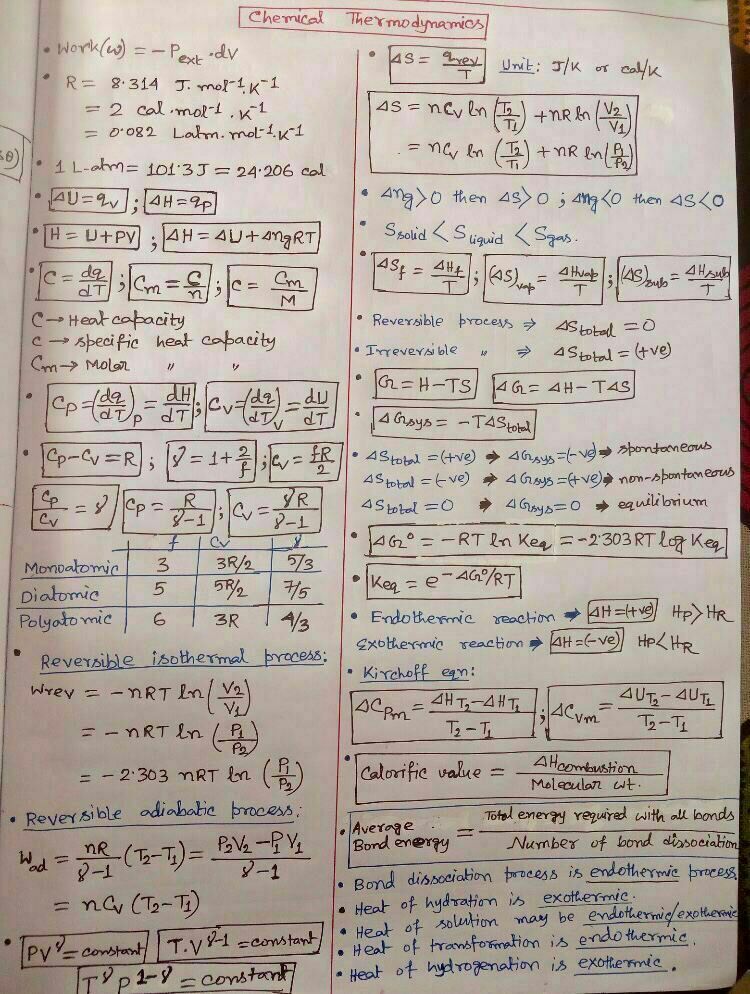 Chemical Thermodynamics
• Work(w) = -Pext.dV
• R = 8.314 J.mol-1.K-1
= 2 cal.mol-1.K-1
= 0.082 Latm.mol-1.K-1
• 1 L-atm = 101.3 J = 24.206 cal
• ΔU=qv ; ΔH=qp
• H = U+PV ; ΔH = ΔU+ΔngRT
• C = dq/dT ; Cm = C/n ; c = Cm/M
C → Heat capacity
c → specific heat capacity
Cm → Molar " "
• CP = (dq/dT)P = dH/dT ; CV = (dq/dT)V = dU/dT
• CP-CV = R ; γ = 1+2/f ; CV = fR/2
CP/CV = γ CP = R/γ-1 ; CV = γR/γ-1
f CV γ
Monoatomic 3 3R/2 5/3
Diatomic 5 5R/2 7/5
Polyatomic 6 3R 4/3
• Reversible isothermal process:
Wrev = -nRT ln (V2/V1)
= -nRT ln (P1/P2)
= -2.303 nRT ln (P1/P2)
• Reversible adiabatic process:
Wad = nR/γ-1 (T2-T1) = P2V2-P1V1/γ-1
= nCV (T2-T1)
• PVγ = constant T.Vγ-1 = constant
TγP1-γ = constant
• ΔS = qrev/T Unit: J/K or cal/K
ΔS = nCV ln (T2/T1) + nR ln (V2/V1)
= nCV ln (T2/T1) + nR ln (P1/P2)
• Δng>0 then ΔS>0 ; Δng<0 then ΔS<0
• Ssolid < Sliquid < Sgas.
• ΔSf = ΔHf/T ; (ΔS)vap = ΔHvap/T ; (ΔS)sub = ΔHsub/T
• Reversible process ⇒ ΔStotal = 0
• Irreversible " ⇒ ΔStotal = (+ve)
• G = H-TS ΔG = ΔH-TΔS
• ΔGsys = -TΔStotal
• ΔStotal = (+ve) → ΔGsys = (-ve) → spontaneous
ΔStotal = (-ve) → ΔGsys = (+ve) → non-spontaneous
ΔStotal = 0 → ΔGsys = 0 → equilibrium
• ΔG° = -RT ln Keq = -2.303 RT log Keq
• Keq = e-ΔG°/RT
• Endothermic reaction → ΔH = (+ve) HP>HR
Exothermic reaction → ΔH = (-ve) HP<HR
• Kirchoff eqn:
ΔCPm = ΔHT2-ΔHT1/T2-T1 ; ΔCVm = ΔUT2-ΔUT1/T2-T1
• Calorific value = ΔHcombustion/Molecular wt.
• Average Bond energy = Total energy required with all bonds/Number of bond dissociation
• Bond dissociation process is endothermic process
• Heat of hydration is exothermic.
• Heat of solution may be endothermic/exothermic
• Heat of transformation is endothermic.
• Heat of hydrogenation is exothermic.